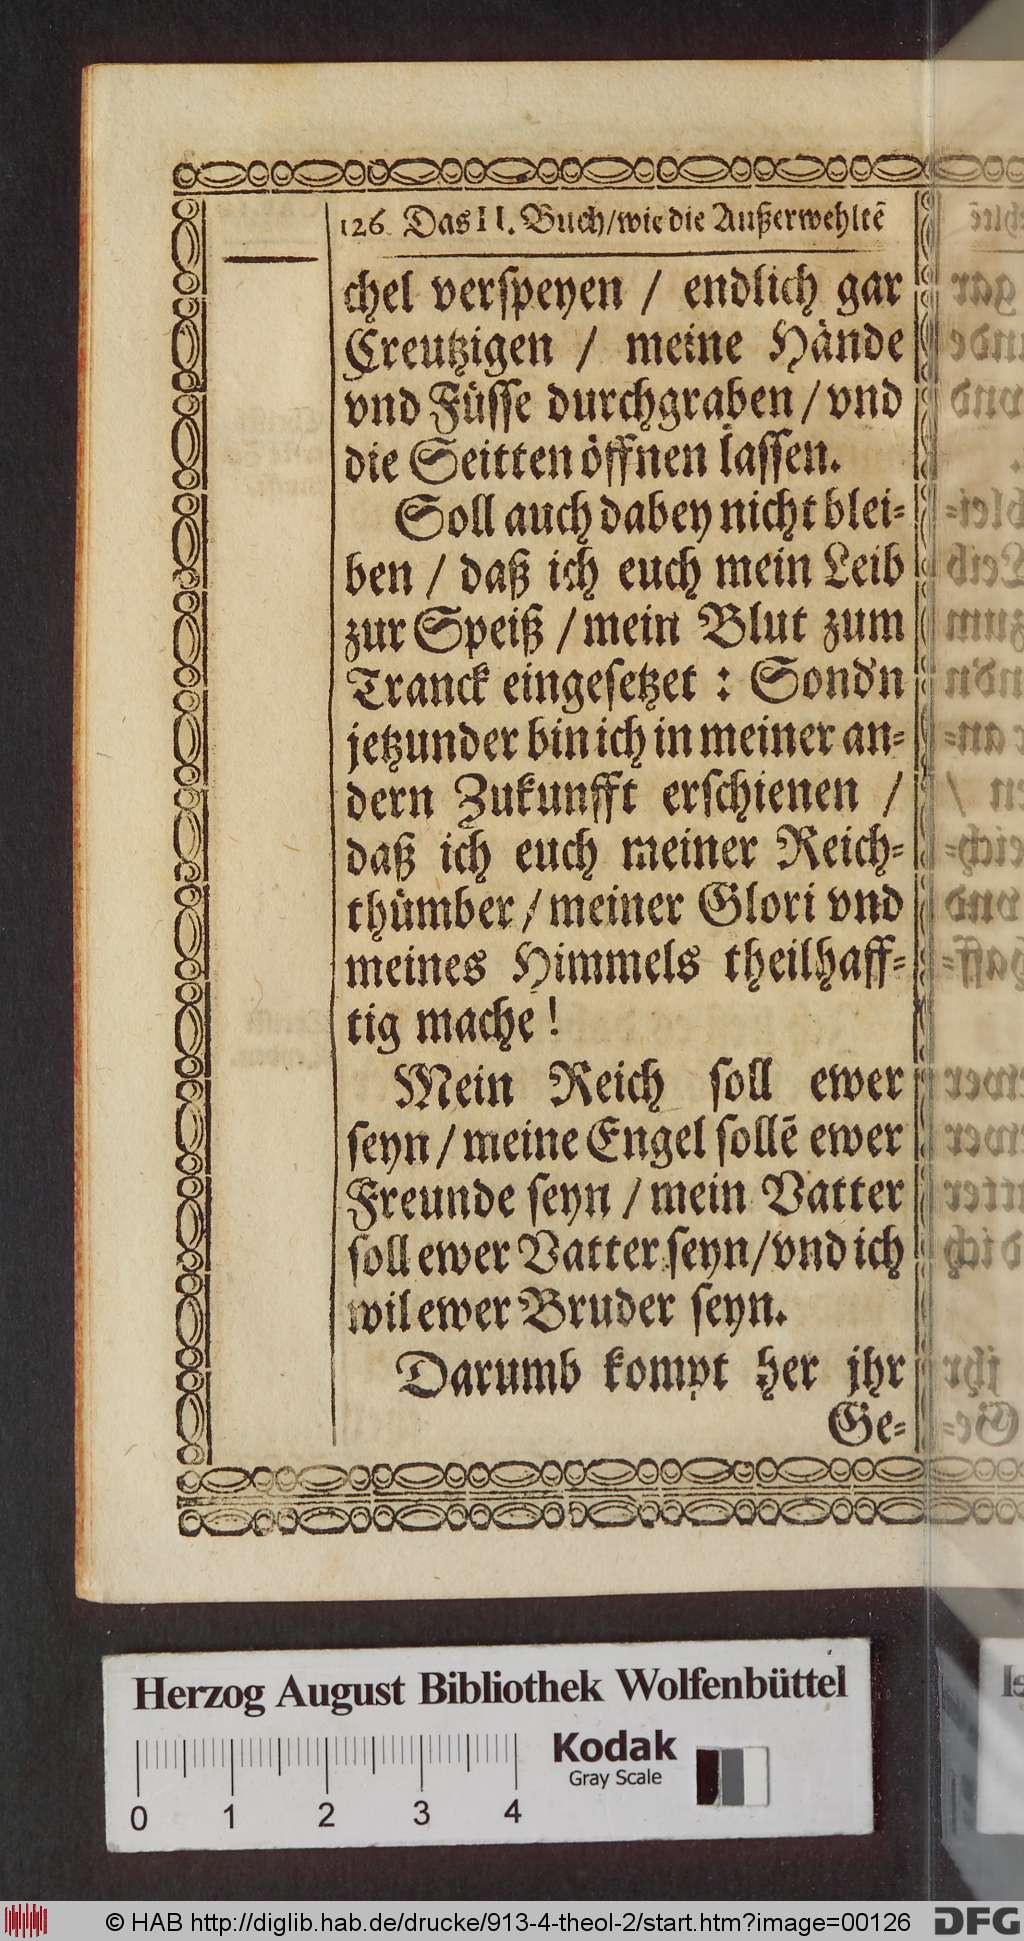 126. Das II. Buch/wie die Außerwehltē
chel verspeyen / endlich gar
Creutzigen / meine Hånde
vnd Füsse durchgraben / vnd
die Seitten öffnen lassen.
Soll auch dabey nicht blei⸗
ben / daß ich euch mein Leib
zur Speiß / mein Blut zum
Tranck eingesetzet : Sond'n
jetzunder bin ich in meiner an⸗
dern Zukunfft erschienen /
daß ich euch meiner Reich⸗
thümber / meiner Glori vnd
meines Himmels theilhaff⸗
tig mache!
Mein Reich soll ewer
seyn / meine Engel sollē ewer
Freunde seyn / mein Vatter
soll ewer Vatter seyn/vnd ich
wil ewer Bruder seyn.
Darumb kompt her jhr
Ge⸗
Herzog August Bibliothek Wolfenbüttel
Kodak
Gray Scale
0 1 2 3 4
© HAB http://diglib.hab.de/drucke/913-4-theol-2/start.htm?image=00126
DFG